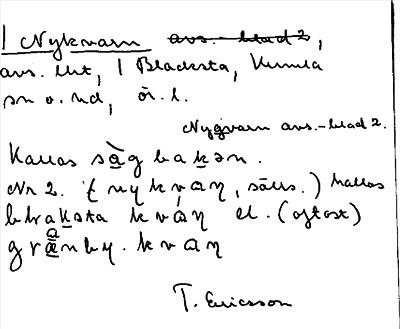 1 Nykvarn avs.-blad 2,
avs. lht, 1 Blacksta, Kumla
sn o. hd, ör. l.
Nyqvarn avs.-blad 2.
Kallas sàg bakən.
Nr 2. (nykvàɳ, sälls.) kallas
blraksta kváɳ el. (oftast)
grænby. kváɳ
T. Ericsson